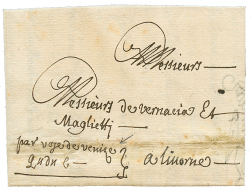 Messieurs
Messieurs de vernacia Et
Maglietti
par voye de venise
a livorne